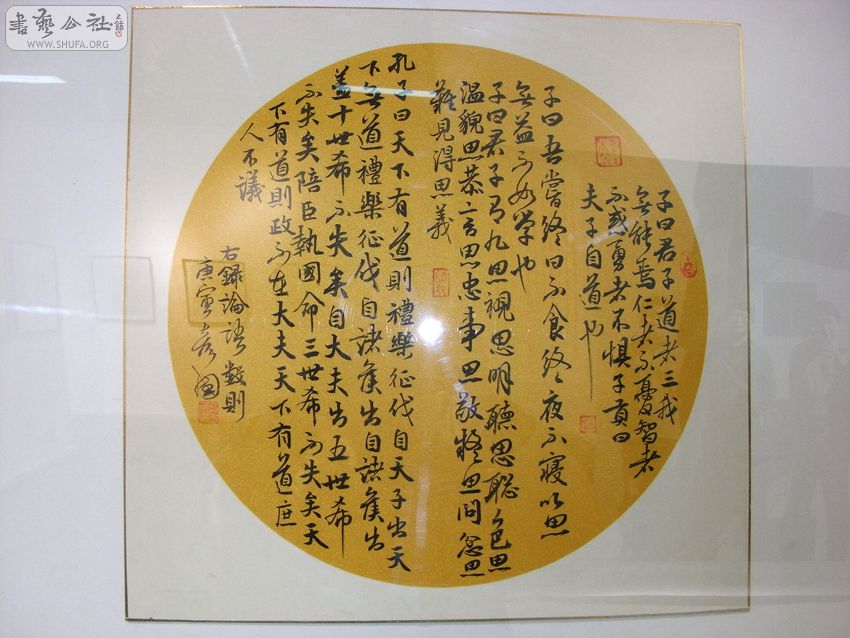 書藝公社
WWW.SHUFA.ORG
子曰君子道者三我
無能焉仁者不憂智者
不惑勇者不惧子貢曰
夫子自道也
子曰吾嘗終日不食終夜不寢以思
無益不如學也
子曰君子有九思視思明聽思聰色思
温貌思恭言思忠事思敬疑思問忿思
難見得思義
孔子曰天下有道則禮樂征伐自天子出天
下無道禮樂征伐自諸侯出自諸侯出
蓋十世希不失矣自大夫出五世希
不失矣陪臣執國命三世希不失矣天
下有道則政不在大夫天下有道庶
人不議
右録論語數則
庚寅